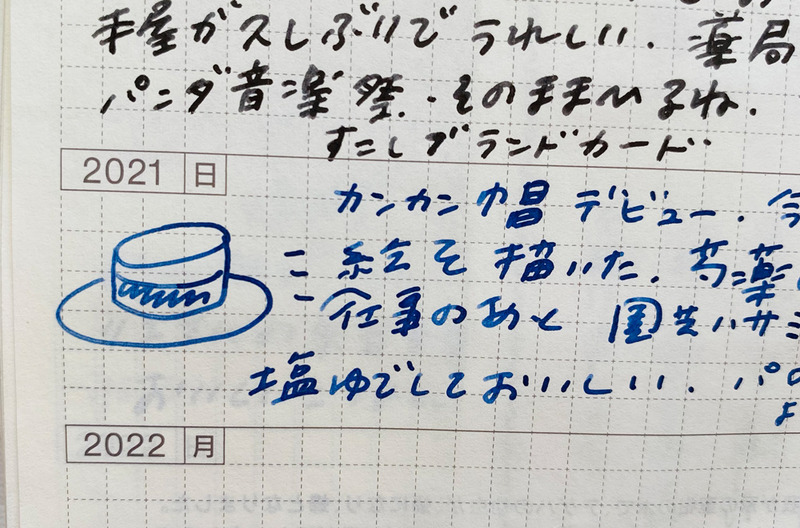 手屋がスしぶりでうれしい. 薬局
パンダ音楽祭. そのままいるね.
すこしブランドカード..
2021 日
カンカン帽デビュー. 今
絵を描いた. 芍薬
仕事のあと 園芸ハサミ
塩ゆでしておいしい. パの
よ
2022 月